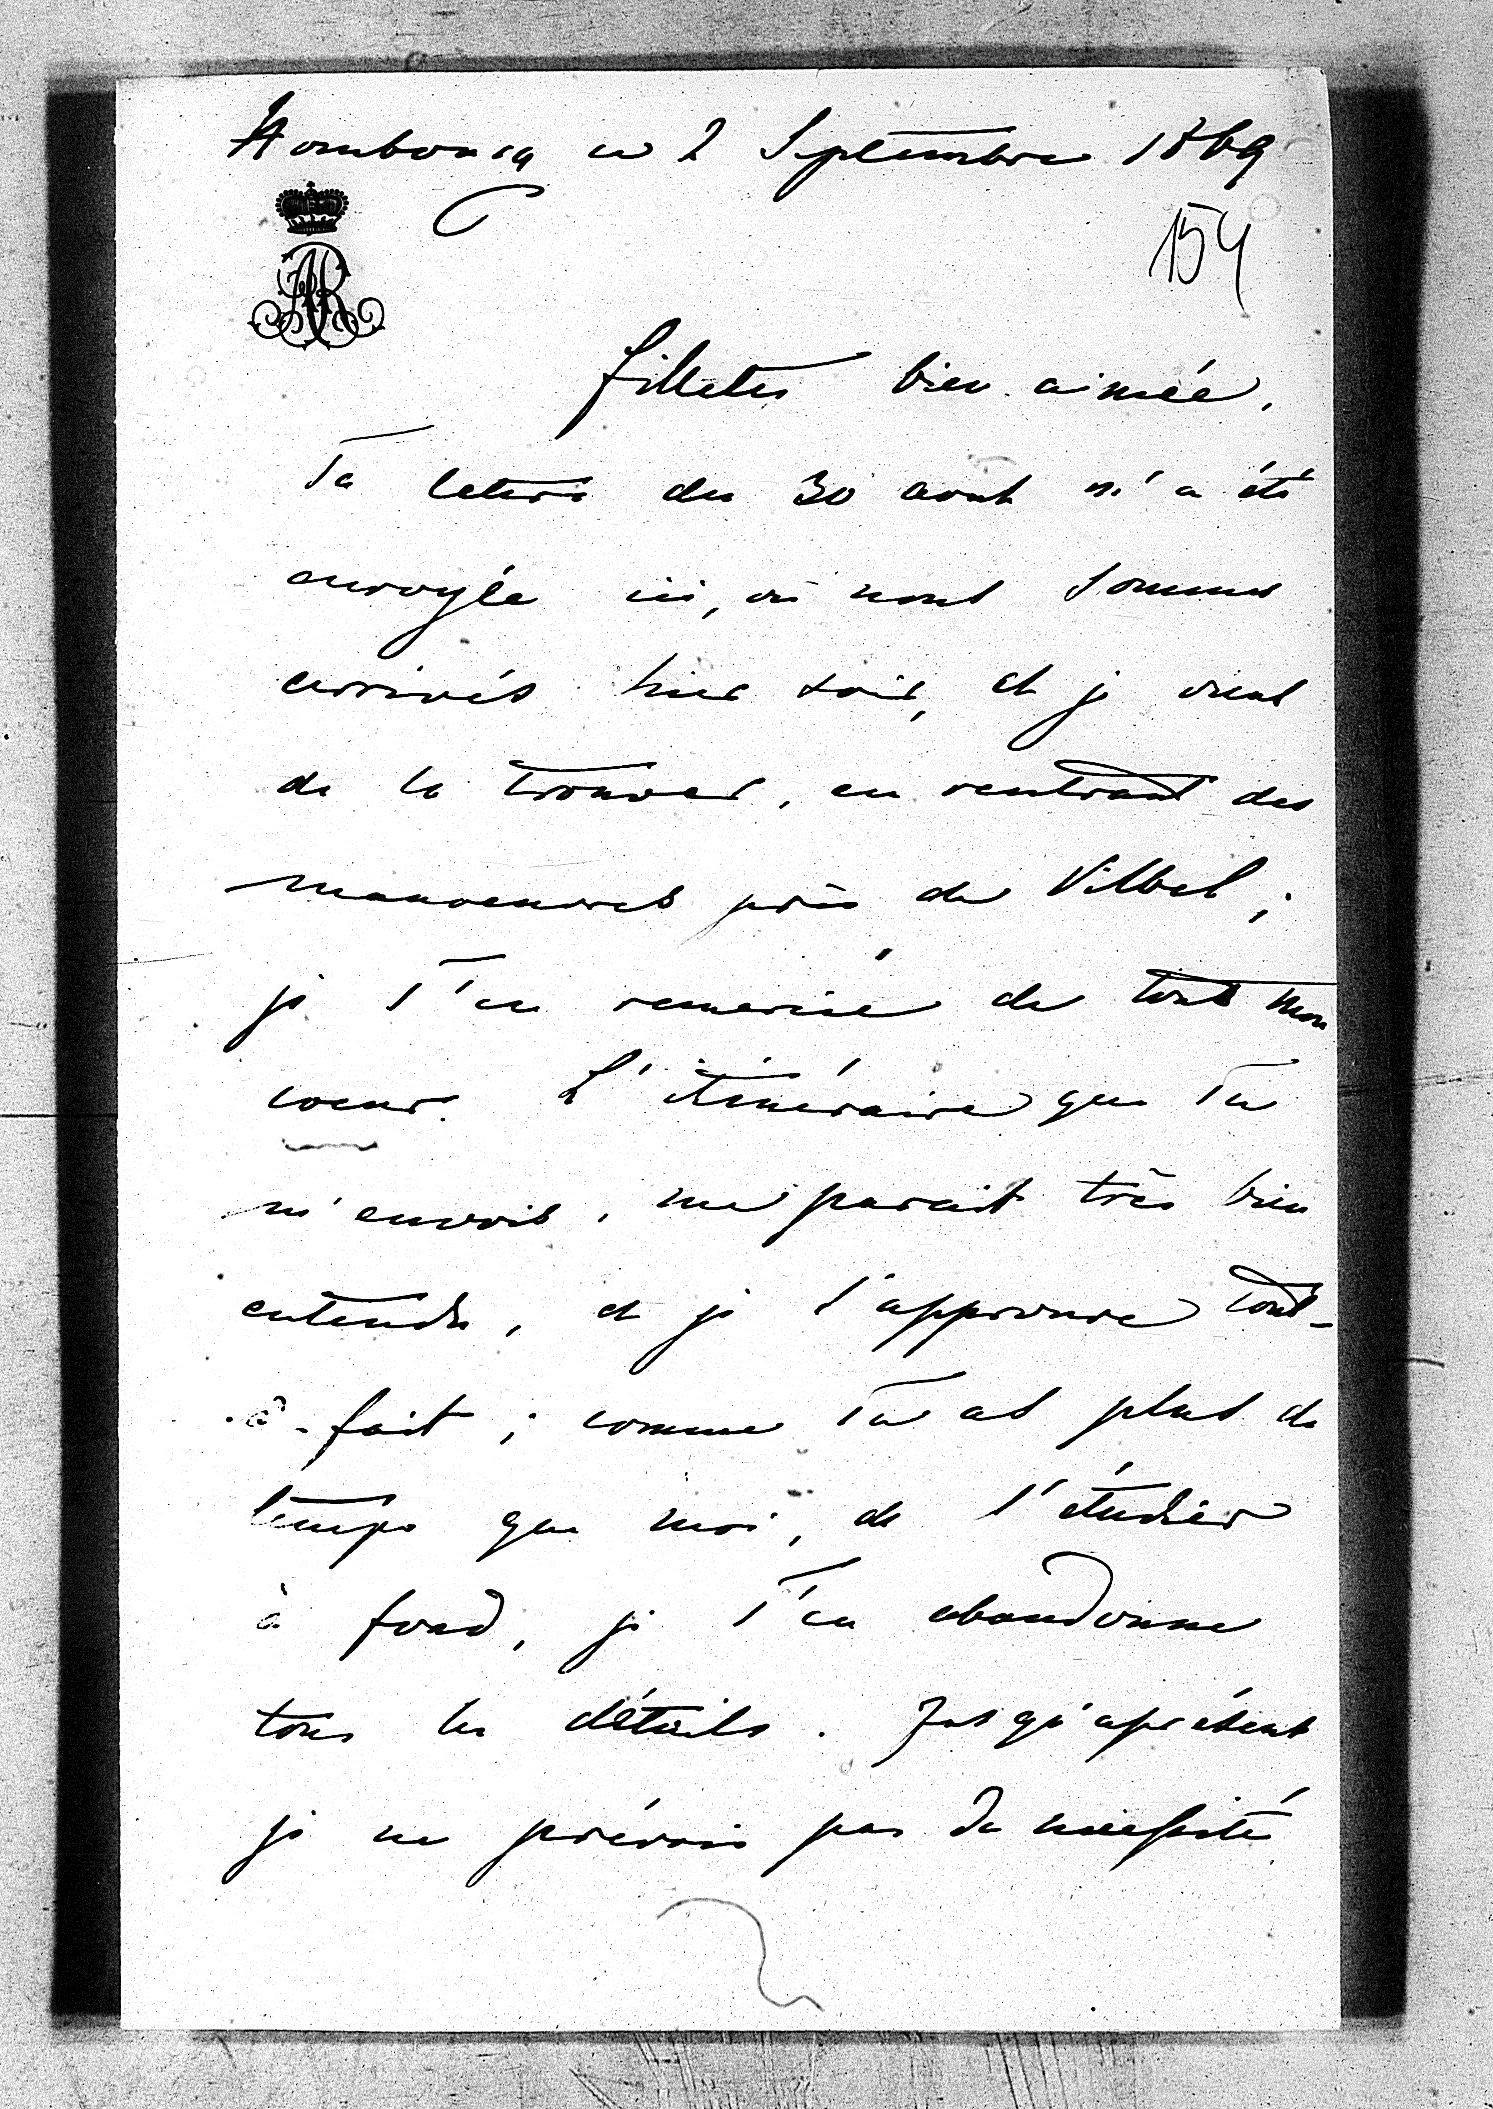 Hombourg ce 2 Septembre 1869
154
AR
fillette bien aimée,
Ta lettre du 30 aout m'a été
envoyée ici, où nous sommes
arrivés hier soir, et je viens
de la trouver, en rentrant des
manoeuvres près de Vilbel;
je t'en remercie de tout mon
coeur. L'itinéraire que tu
m'envois, me parait très bien
entendu, et je l'approuve tout-
à-fait; comme tu as plus de
temps que moi, de l'étudier
à fond, je t'en abandonne
tous les détails. Jusqu'aprésent
je ne prévois pas de nécessité